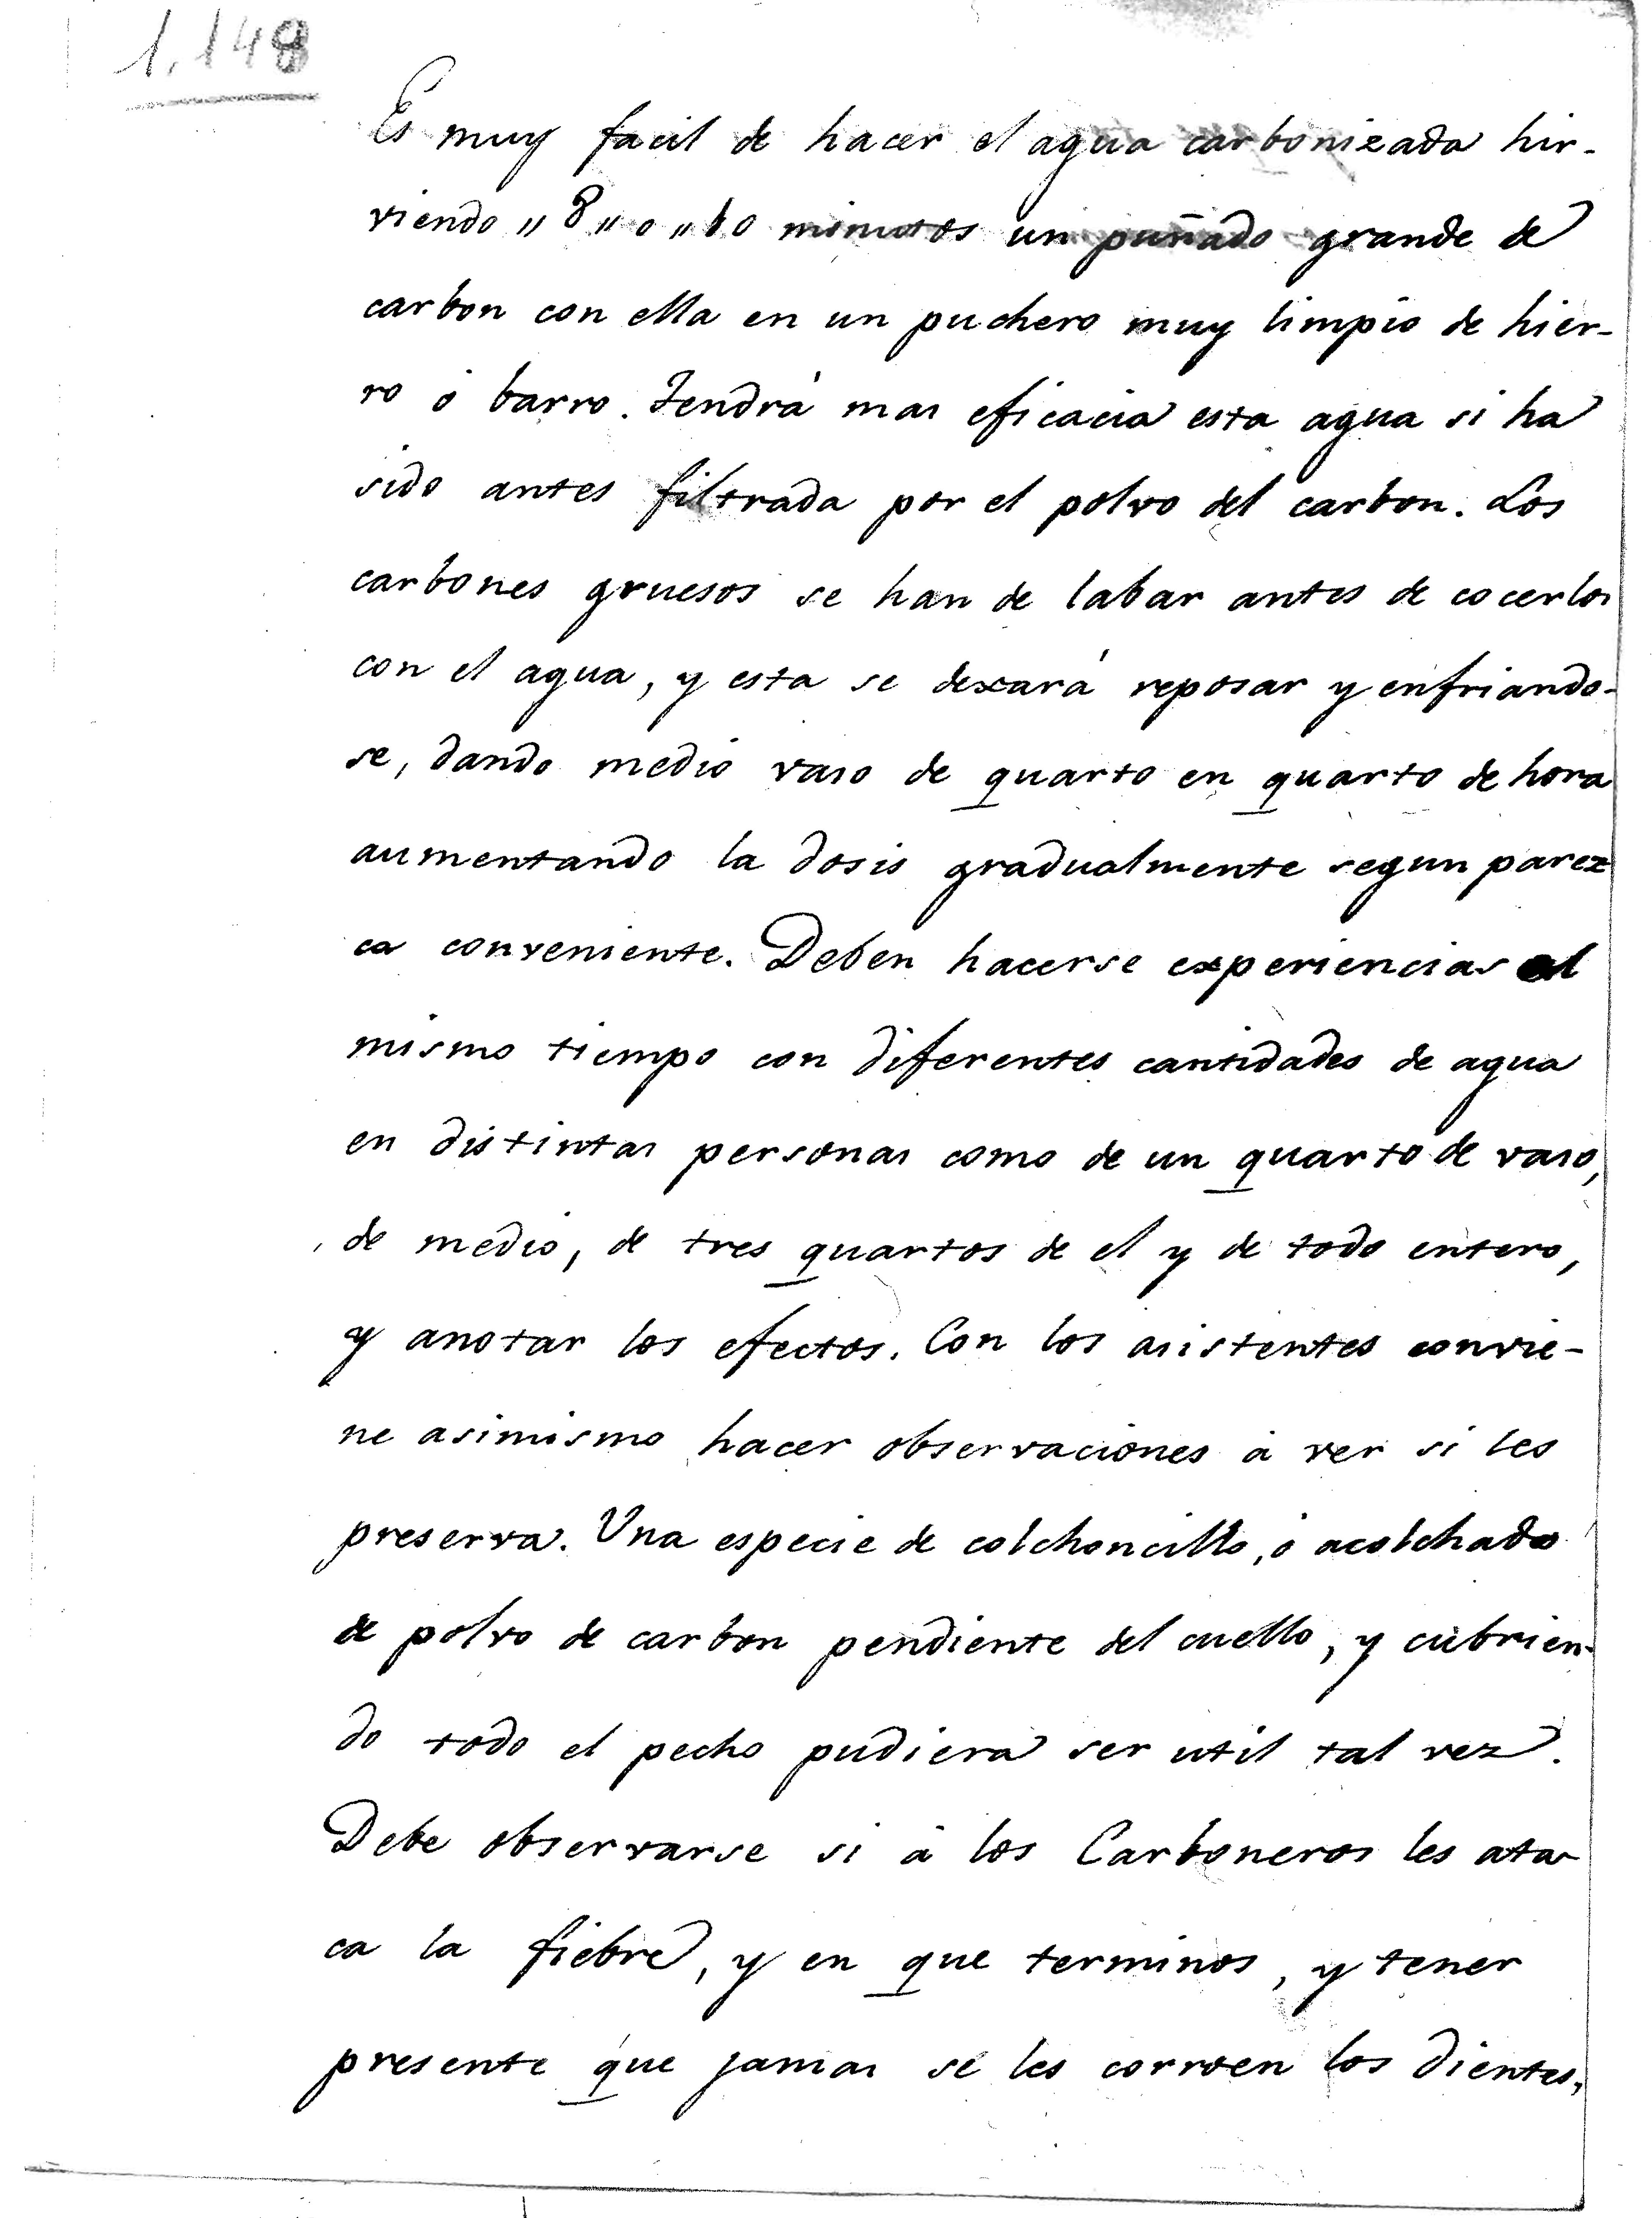 1.148
Es muy facil de hacer el agua carbonizada hir-
viendo " 8 " o " 10 minutos un puñado grande de
carbon con ella en un puchero muy limpio de hier-
ro ó barro. Tendrá mas eficacia esta agua si ha
sido antes filtrada por el polvo del carbon. Los
carbones gruesos se han de labar antes de cocerlos
con el agua, y esta se dexará reposar y enfriando-
se, dando medio vaso de quarto en quarto de hora
aumentando la dosis gradualmente segun parez
ca conveniente. Deben hacerse experiencias al
mismo tiempo con diferentes cantidades de agua
en distintas personas como de un quarto de vaso,
de medio, de tres quartos de el y de todo entero,
y anotar los efectos. Con los asistentes convie-
ne asimismo hacer observaciones á ver si les
preserva. Una especie de colchoncillo, ó acolchado
de polvo de carbon pendiente del cuello, y cubrien-
do todo el pecho pudiera ser util tal vez.
Debe observarse si á los Carboneros les ata
ca la fiebre, y en que terminos, y tener
presente que jamas se les corroen los dientes,